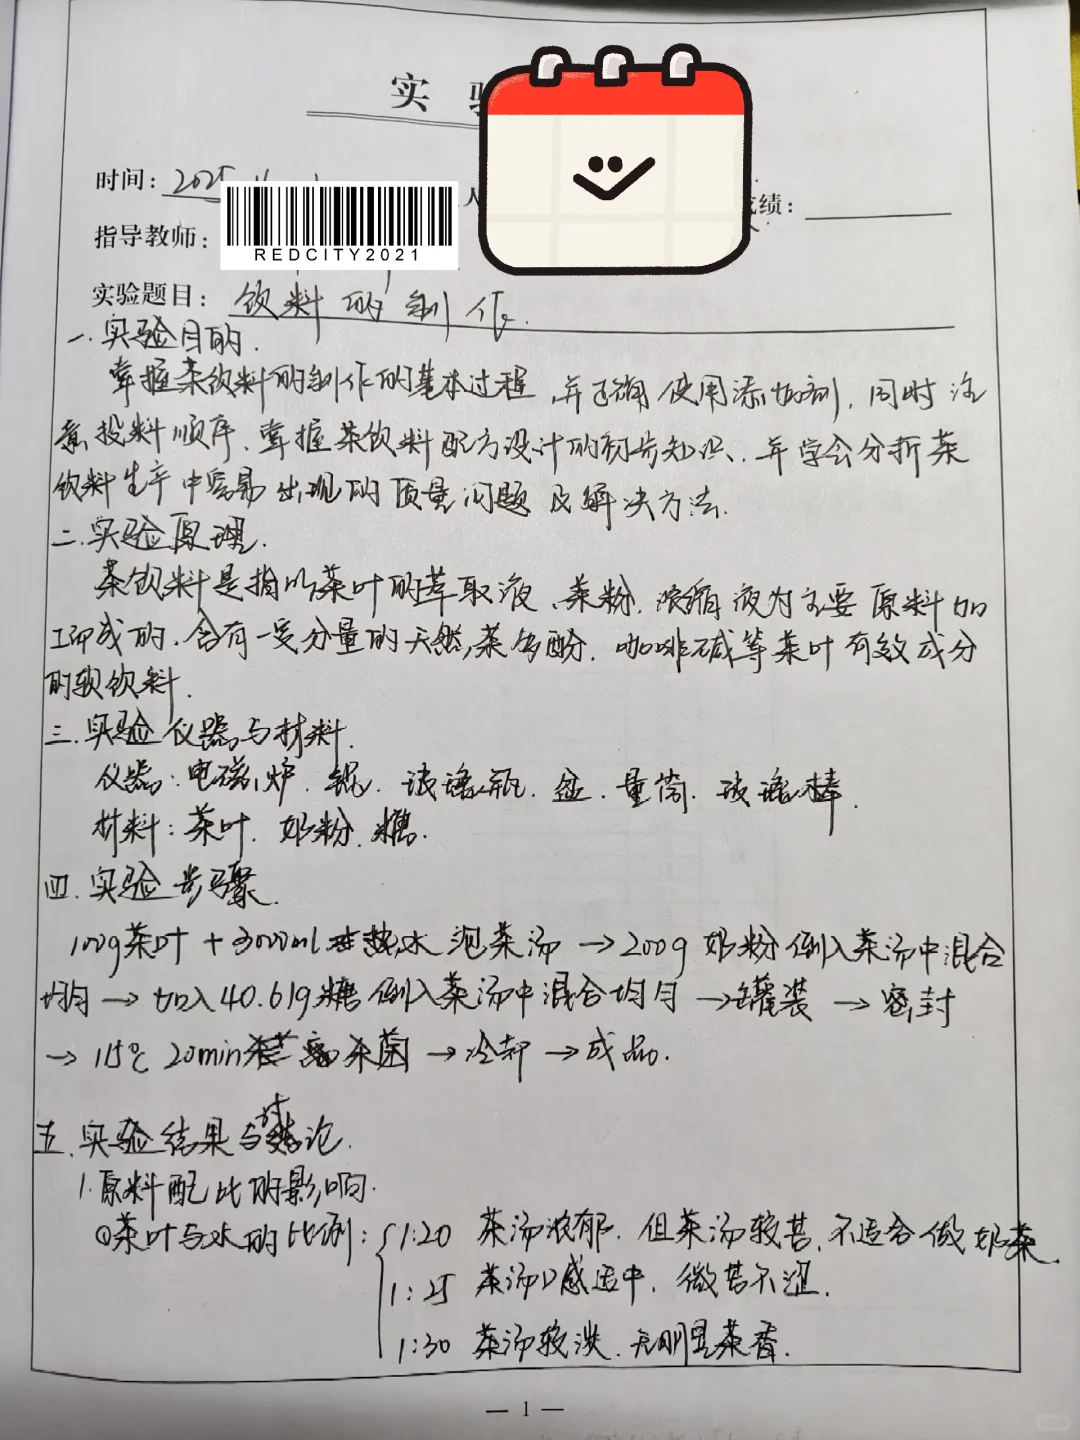 实
时间：2025
REDCITY2021
成绩：
指导教师：
实验题目：饮料的制作.
一.实验目的.
掌握茶饮料的制作的基本过程，并正确使用添加剂，同时注
意投料顺序，掌握茶饮料配方设计的初步知识，并学会分析茶
饮料生产中容易出现的质量问题及解决方法.
二.实验原理.
茶饮料是指以茶叶的萃取液、茶粉、浓缩液为主要原料加
工而成的，含有一定分量的天然茶多酚、咖啡碱等茶叶有效成分
的软饮料.
三.实验仪器与材料.
仪器：电磁炉、锅、玻璃瓶、盆、量筒、玻璃棒.
材料：茶叶、奶粉、糖.
四.实验步骤.
100g茶叶+3000ml热水泡茶汤→200g奶粉倒入茶汤中混合
均匀→加入40.61g糖倒入茶汤中混合均匀→罐装→密封
→115℃ 20min杀菌→冷却→成品.
五.实验结果与讨论.
1.原料配比的影响.
①茶叶与水的比例：1:20 茶汤浓郁，但茶汤较苦，不适合做奶茶.
1:25 茶汤口感适中，微苦不涩.
1:30 茶汤较淡，无明显茶香.
— 1 —